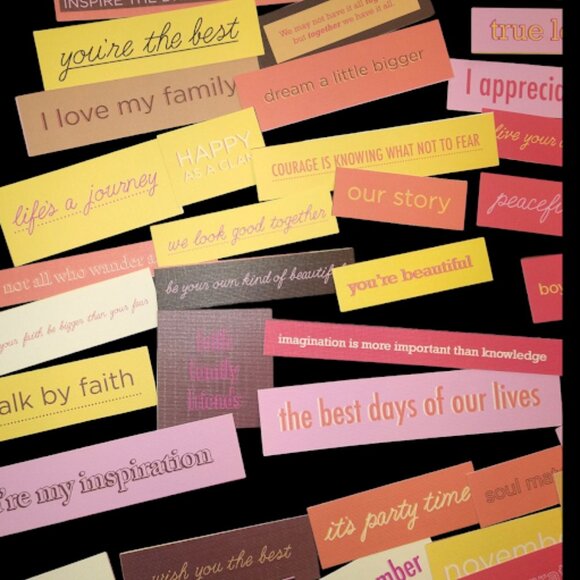 INSPIRE THE
you're the best
We may not have it all
but together we have it all.
true
I love my family
dream a little bigger
I apprecia
live your
HAPPY
AS A CLAM
COURAGE IS KNOWING WHAT NOT TO FEAR
life's a journey
our story
peacefu
we look good together
not all who wander a
be your own kind of beautiful
you're beautiful
boy
your faith be bigger than your fear
family
friends
imagination is more important than knowledge
alk by faith
the best days of our lives
're my inspiration
it's party time
soul mat
wish you the best
mber
november